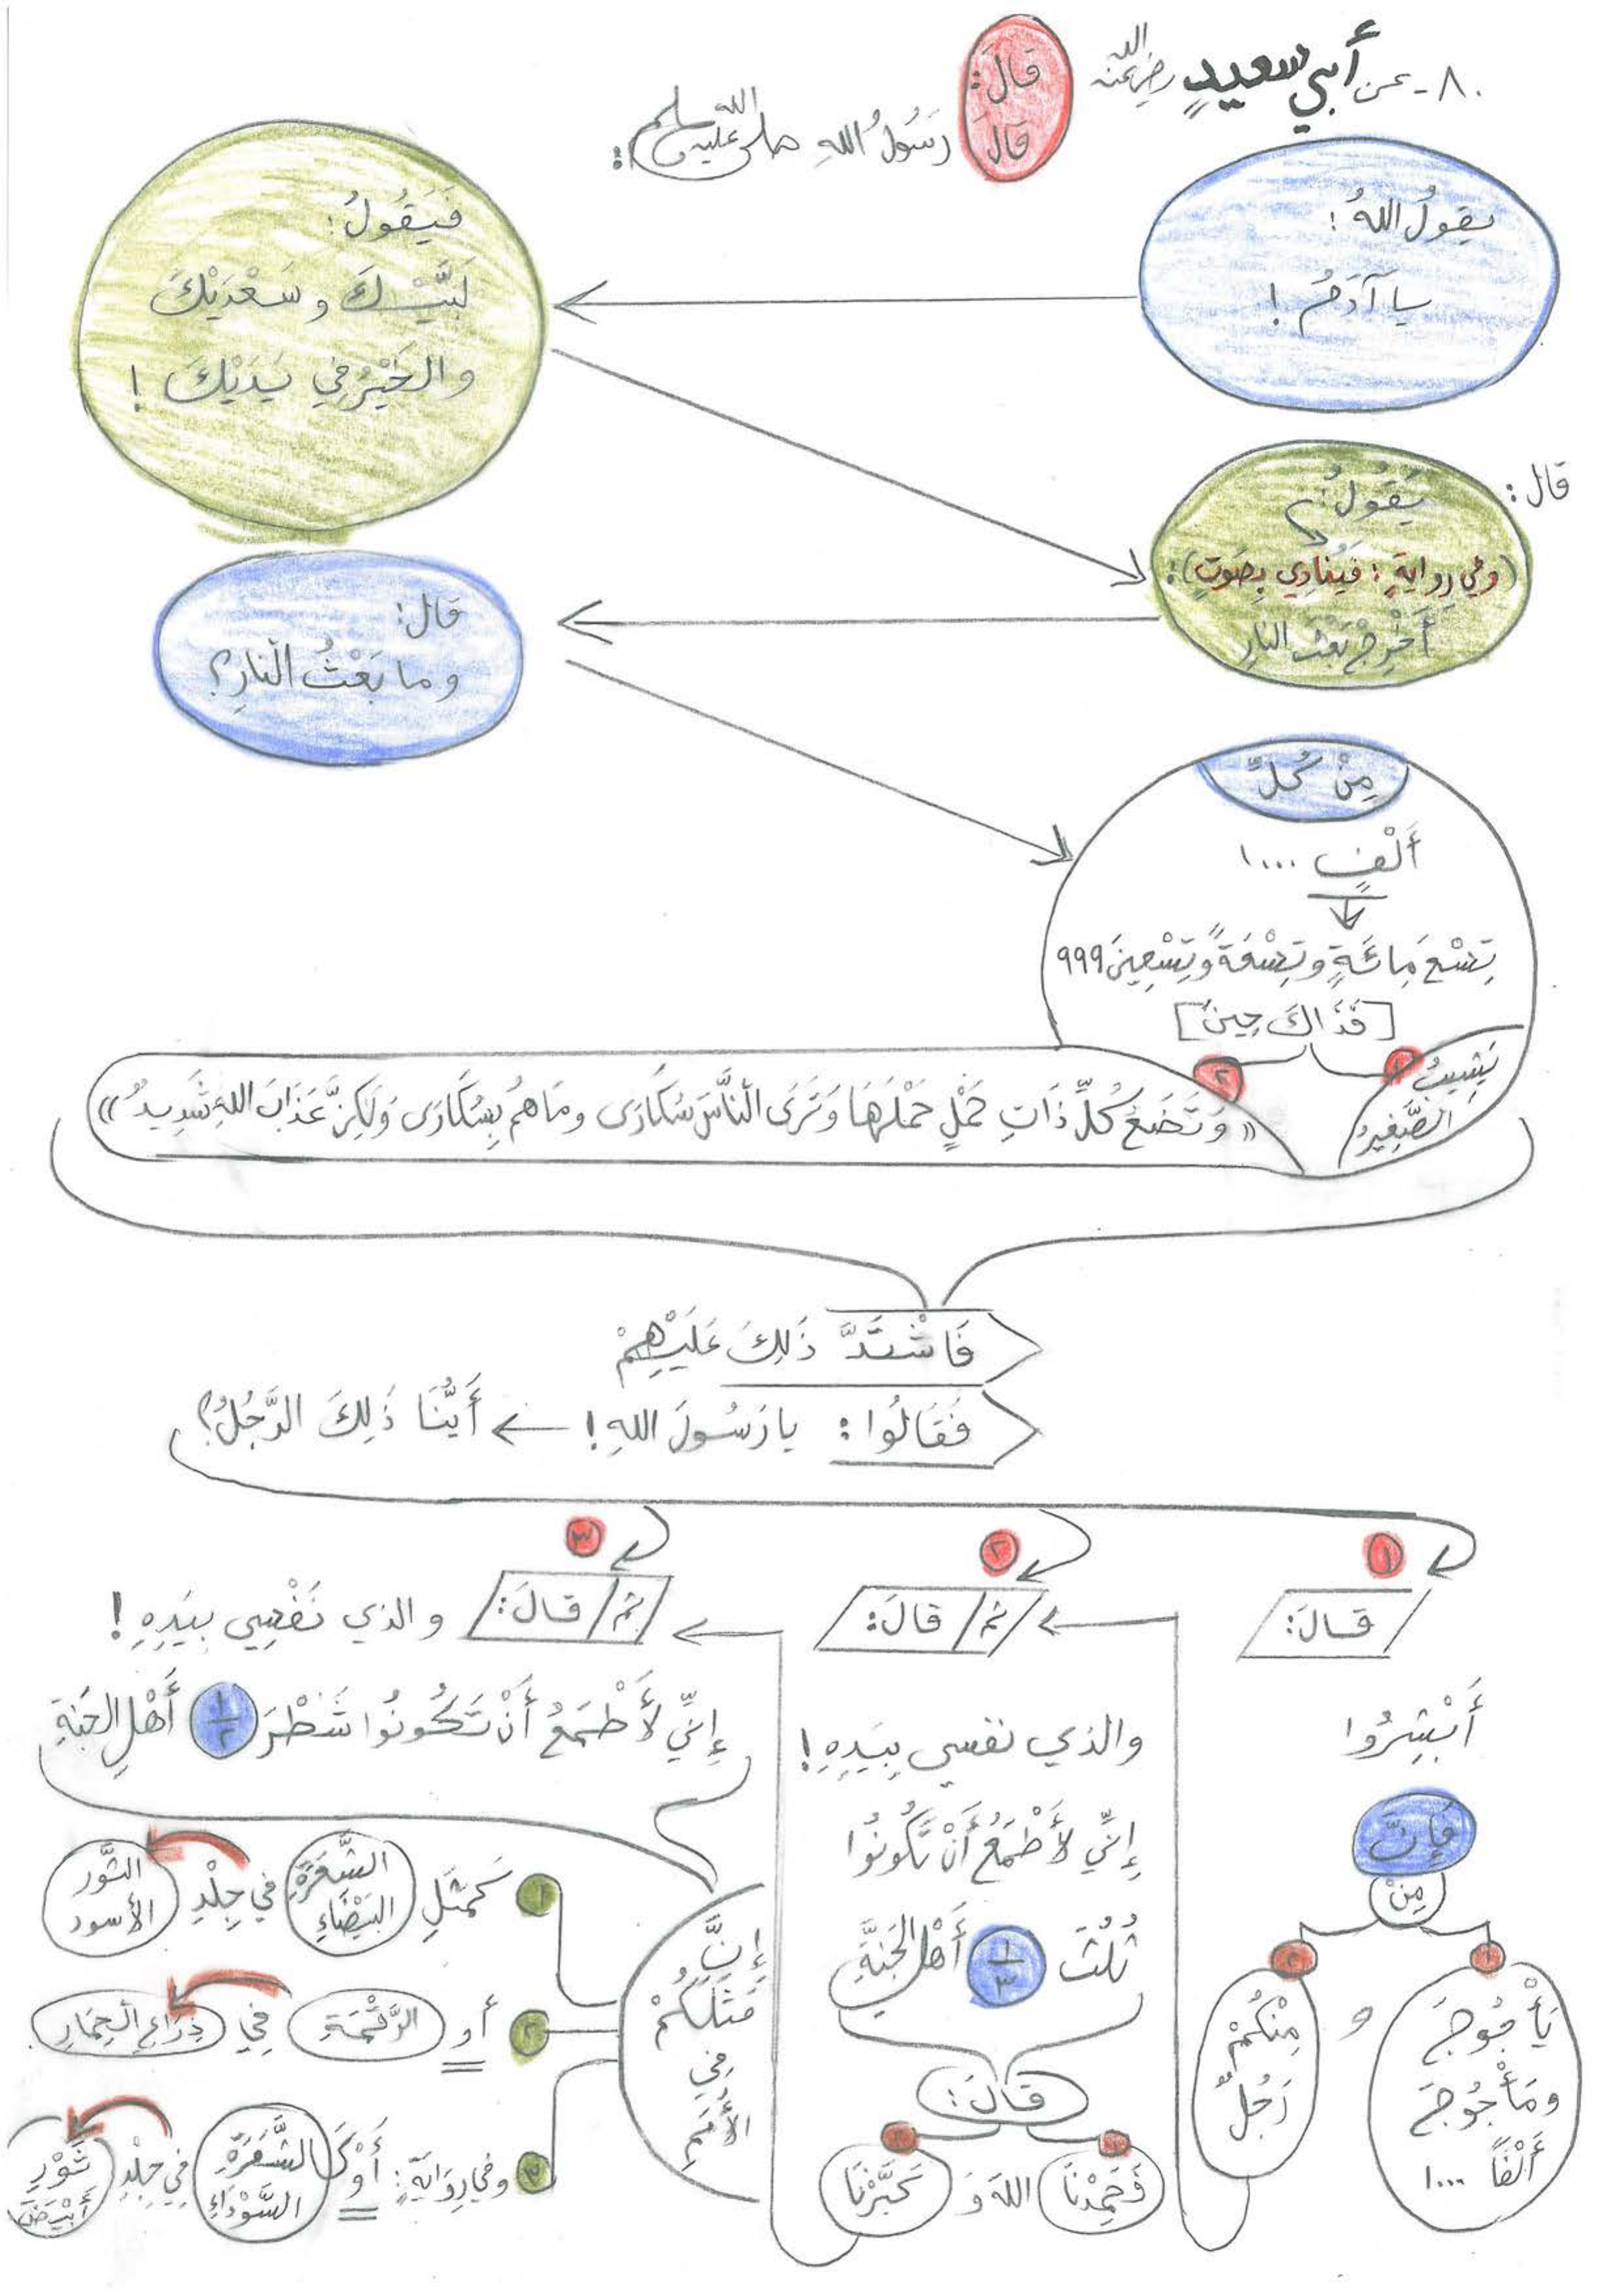 ٨٠- عن أبي سعيدٍ رضي الله عنه
قَالَ:
قَالَ رَسُولُ اللهِ صلى الله عليه وسلم:
يقولُ اللهُ:
يا آدَمُ!
فَيَقُولُ:
لَبَّيْكَ وسَعْدَيْكَ
والخَيْرُ في يَدَيْكَ!
قال:
يَقُولُ:
(وفي روايةٍ: فيُنادِي بِصَوتٍ):
أَخْرِجْ بَعْثَ النارِ
قال:
وما بَعْثُ النارِ؟
مِنْ كُلِّ
أَلْفٍ ١٠٠٠
تِسْعَ مِائَةٍ وتِسْعَةً وتِسْعِينَ ٩٩٩
[فَذَاكَ حِينَ]
١
يَشِيبُ
الصَّغِيرُ
٢
«وَتَضَعُ كُلُّ ذَاتِ حَمْلٍ حَمْلَهَا وَتَرَى النَّاسَ سُكَارَى ومَا هُم بِسُكَارَى وَلَكِنَّ عَذَابَ اللهِ شَدِيدٌ»
فَاشْتَدَّ ذَلِكَ عَلَيْهِمْ
فَقَالُوا: يا رَسُولَ اللهِ! أَيُّنَا ذَلِكَ الرَّجُلُ؟
١
قَالَ:
أَبْشِرُوا
فَإِنَّ
مِنْ
١
يَأْجُوجَ
ومَأْجُوجَ
أَلْفًا ١٠٠٠
و
٢
مِنْكُمْ
رَجُلٌ
٢
ثم / قَالَ:
والذي نفسي بِيَدِهِ!
إِنِّي لأَطْمَعُ أَنْ تَكُونُوا
ثُلُثَ ١/٣ أَهْلِ الجَنَّةِ
قَالَ:
١ ٢
فَحَمِدْنَا اللهَ وَ كَبَّرْنَا
٣
ثم / قَالَ: والذي نَفْسِي بِيَدِهِ!
إِنِّي لأَطْمَعُ أَنْ تَكُونُوا شَطْرَ ١/٢ أَهْلِ الجَنَّةِ
إِنَّ
مَثَلَكُمْ
في
الأُمَمِ
١ كَمَثَلِ الشَّعَرَةِ البَيْضَاءِ في جِلْدِ الثَّورِ الأسودِ
٢ أو الرَّقْمَةِ فِي ذِرَاعِ الحِمَارِ.
٣ وفي رِوَايَةٍ: أَوْ كَالشَّعَرَةِ السَّوْدَاءِ في جِلْدِ ثَوْرٍ أَبْيَضَ